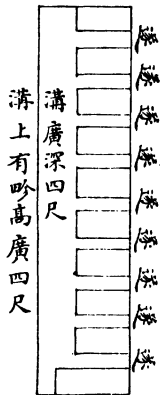 遂
遂
遂
遂
遂
遂
遂
遂
遂
溝廣深四尺
溝上有畛髙廣四尺